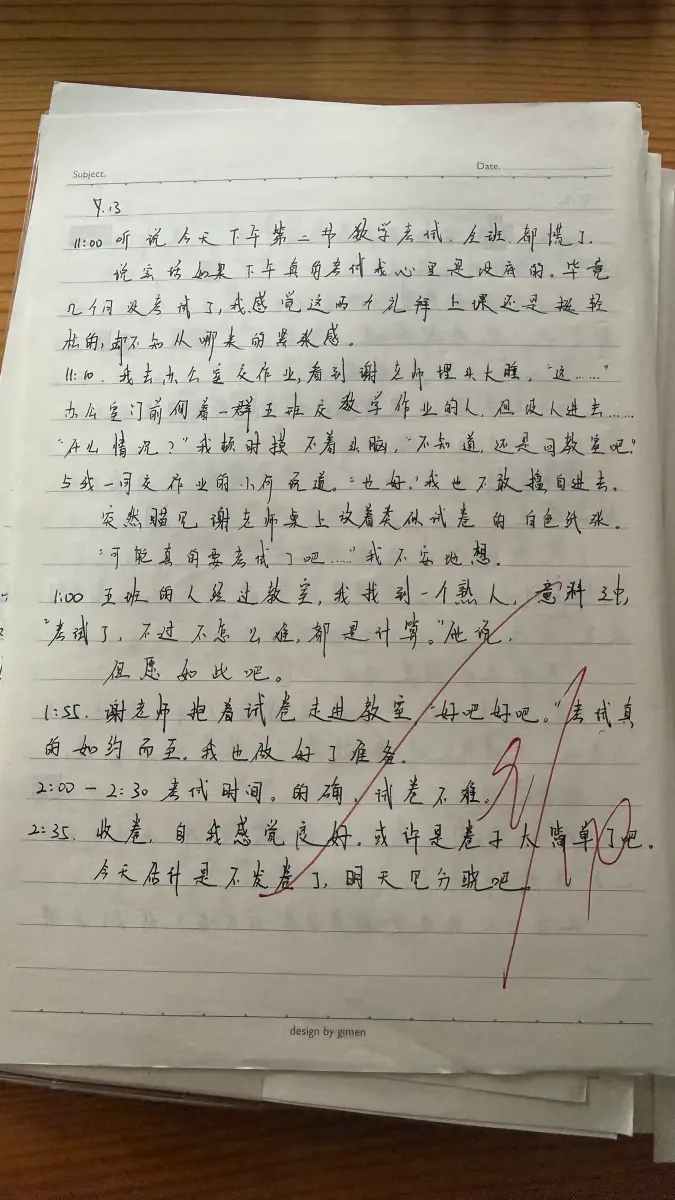 Subject.
Date.
9.13
11:00 听说今天下午第二节数学考试.全班.都慌了.
说实话如果下午真的考试我心里是没底的.毕竟
几个月没考试了,我感觉这两个礼拜上课还是挺轻
松的,却不知从哪来的紧张感。
11:10. 我去办公室交作业,看到谢老师埋头大睡,"这……"
办公室门前伺着一群五班交数学作业的人.但没人进去……
"什么情况?"我顿时摸不着头脑,"不知道,还是回教室吧."
与我一同交作业的小何说道。"也好."我也不敢擅自进去.
突然瞄见谢老师桌上放着类似试卷的白色纸张。
"可能真的要考试了吧……"我不安地想.
1:00 五班的人经过教室,我找到一个熟人,意料之中,
"考试了,不过不怎么难,都是计算."他说.
但愿如此吧。
1:55. 谢老师抱着试卷走进教室"好吧好吧。"考试真
的如约而至.我也做好了准备.
2:00-2:30 考试时间。的确,试卷不难。
2:35. 收卷,自我感觉良好.或许是卷子太简单了吧.
今天估计是不发卷了,明天见分晓吧.
design by gimen